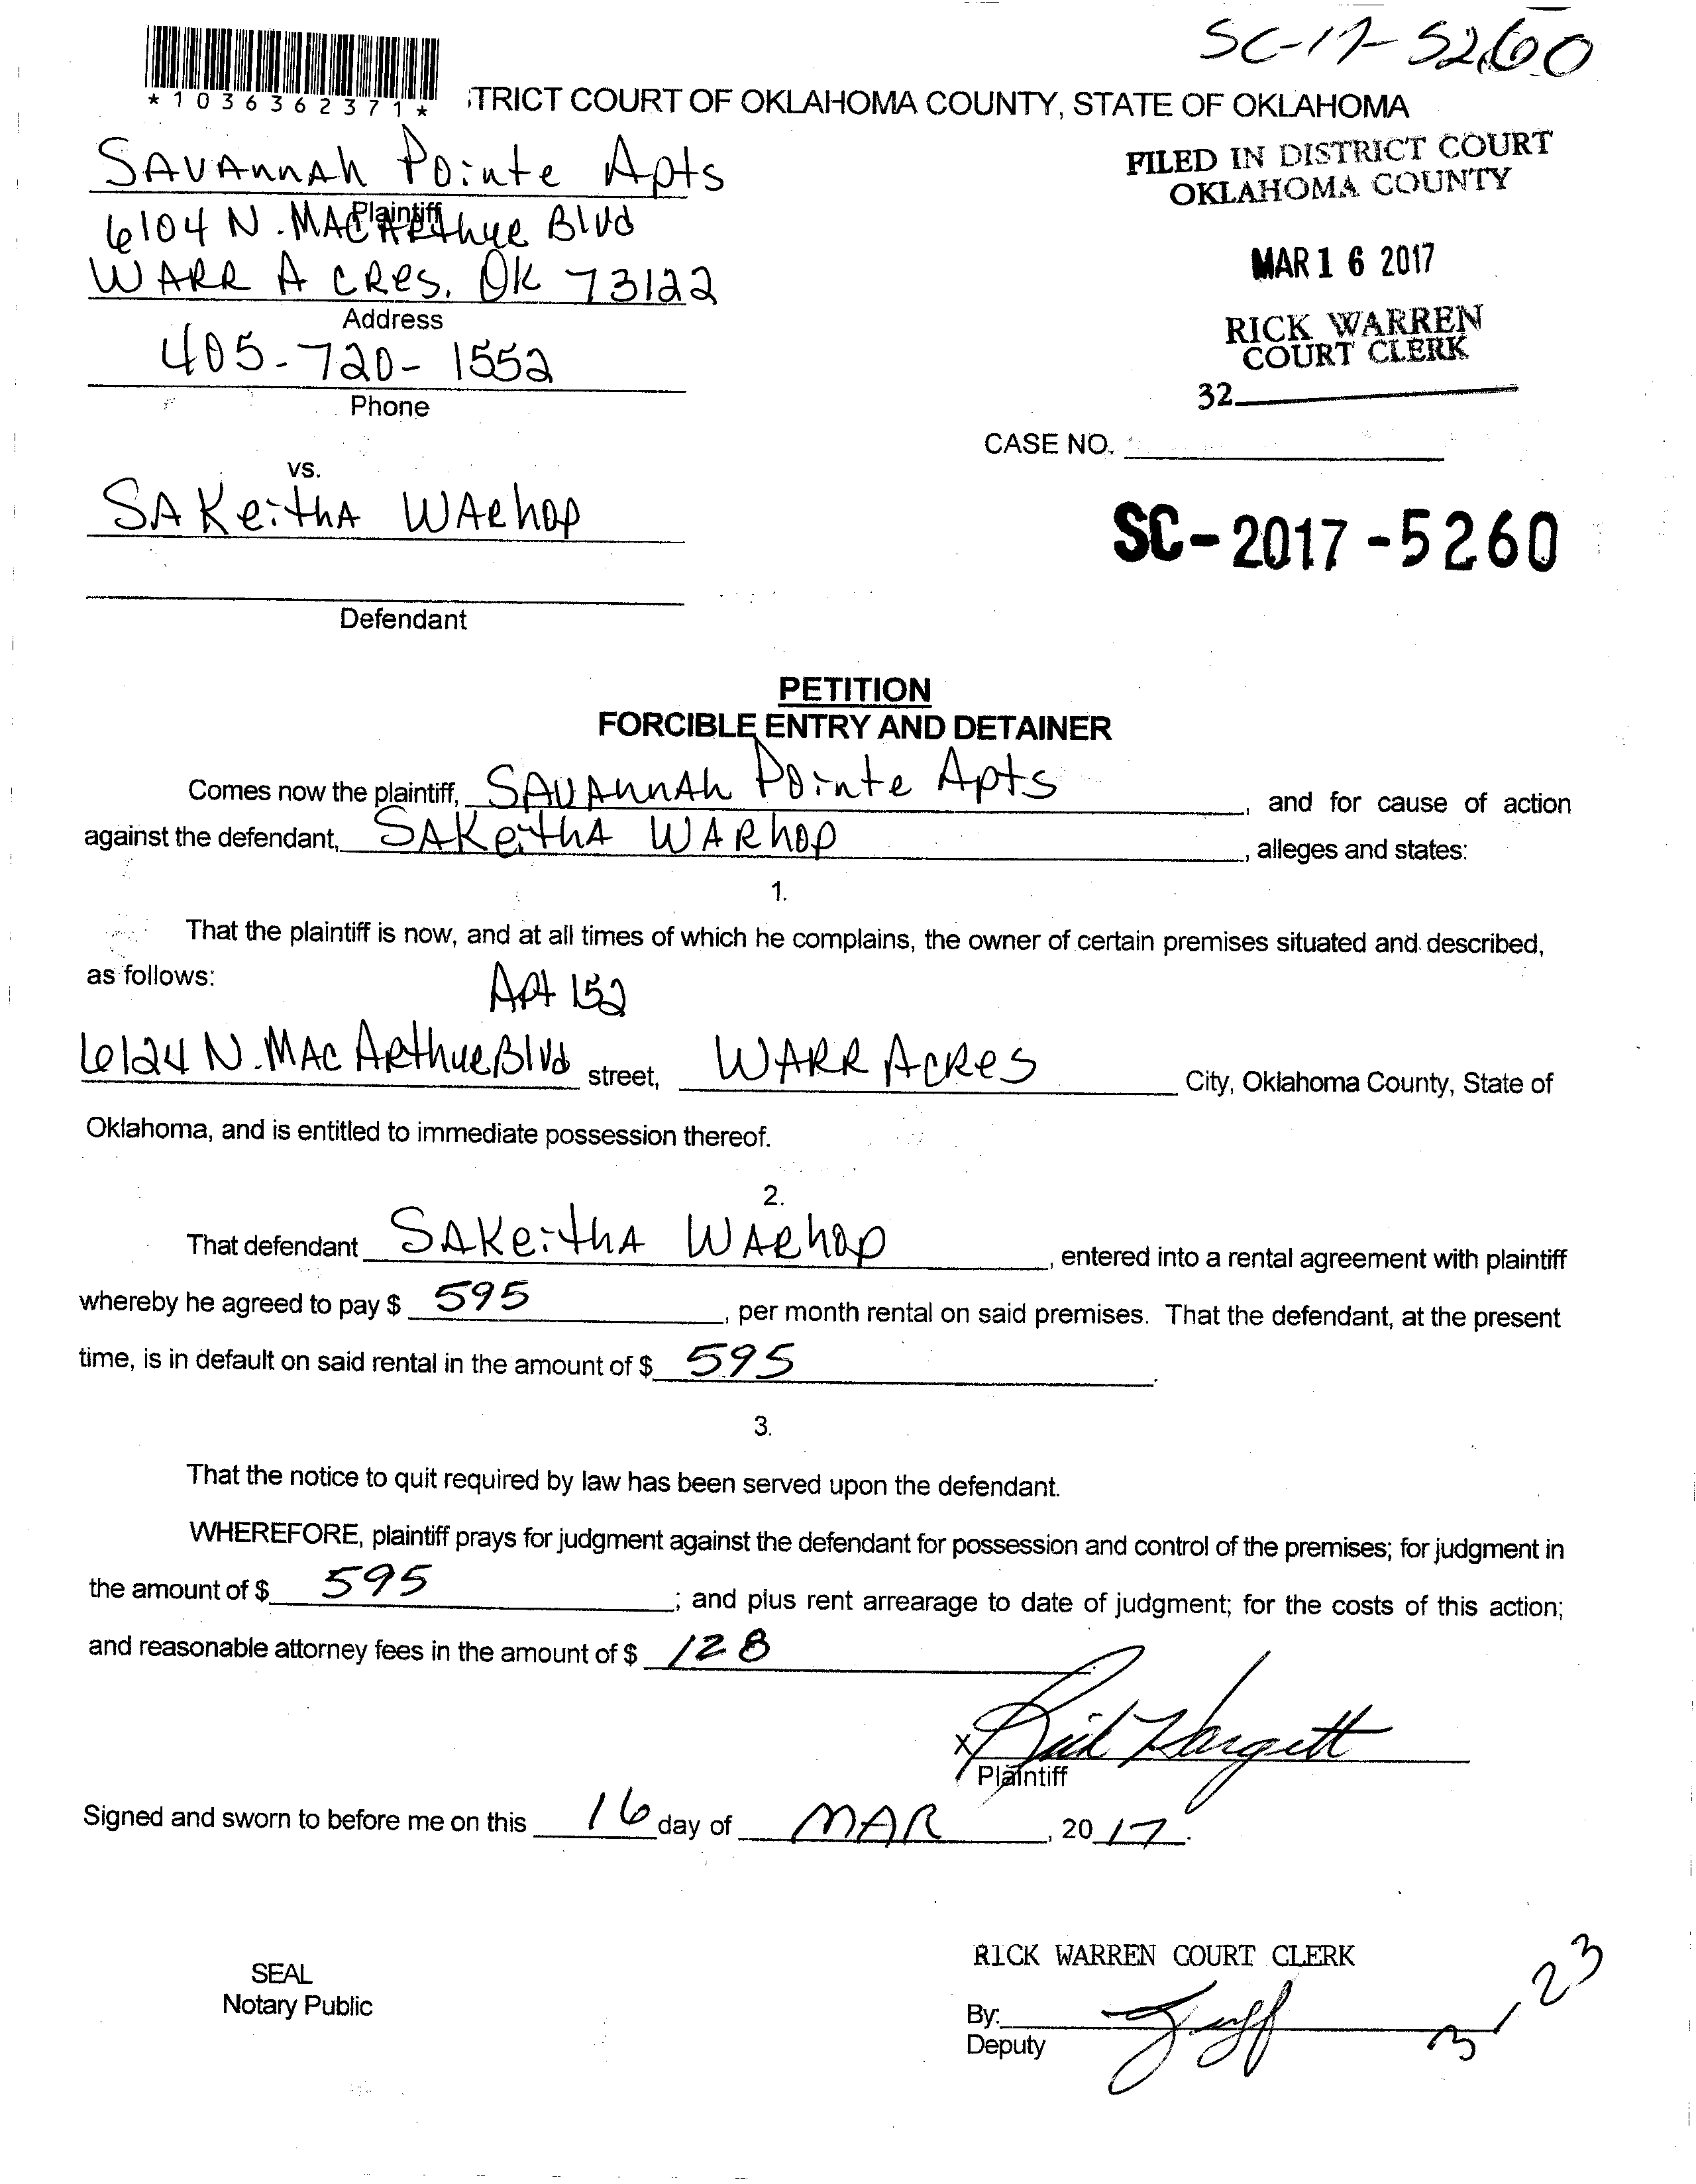 SC-17-5260
*1036362371*
TRICT COURT OF OKLAHOMA COUNTY, STATE OF OKLAHOMA
SAVANNAh Pointe Apts
Plaintiff
6104 N. MACARthuR Blvd
WARR ACRes, OK 73122
Address
405-720-1552
Phone
FILED IN DISTRICT COURT
OKLAHOMA COUNTY
MAR 16 2017
RICK WARREN
COURT CLERK
32
CASE NO.
vs.
SAKeithA WARhop
SC-2017-5260
Defendant
PETITION
FORCIBLE ENTRY AND DETAINER
Comes now the plaintiff, SAVANNAh Pointe Apts, and for cause of action
against the defendant, SAKeithA WARhop, alleges and states:
1.
That the plaintiff is now, and at all times of which he complains, the owner of certain premises situated and described,
as follows:
Apt 152
6124 N. MAC ARthuR Blvd street, WARR ACRes City, Oklahoma County, State of
Oklahoma, and is entitled to immediate possession thereof.
2.
That defendant SAKeithA WARhop, entered into a rental agreement with plaintiff
whereby he agreed to pay $ 595, per month rental on said premises. That the defendant, at the present
time, is in default on said rental in the amount of $ 595.
3.
That the notice to quit required by law has been served upon the defendant.
WHEREFORE, plaintiff prays for judgment against the defendant for possession and control of the premises; for judgment in
the amount of $ 595; and plus rent arrearage to date of judgment; for the costs of this action;
and reasonable attorney fees in the amount of $ 128
X Rick Hargett
Plaintiff
Signed and sworn to before me on this 16 day of MAR, 2017.
SEAL
Notary Public
RICK WARREN COURT CLERK
By:
Deputy
3/23